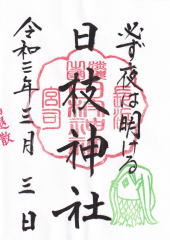 必ず夜は明ける
日枝神社
令和三年三月三日
宮司